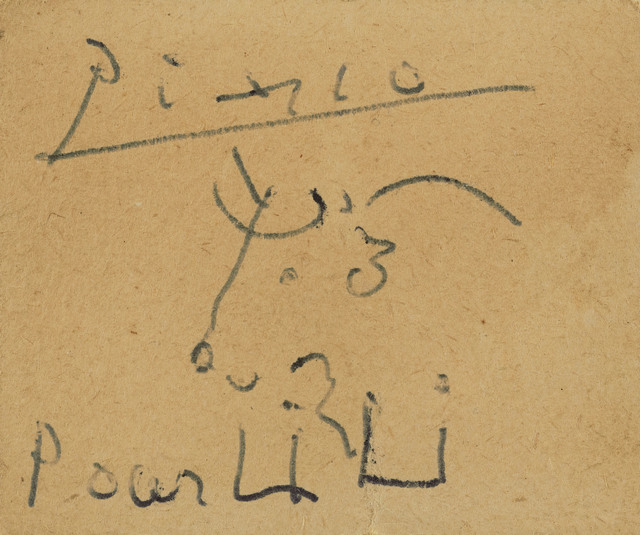 Picasso
Pour LiLi